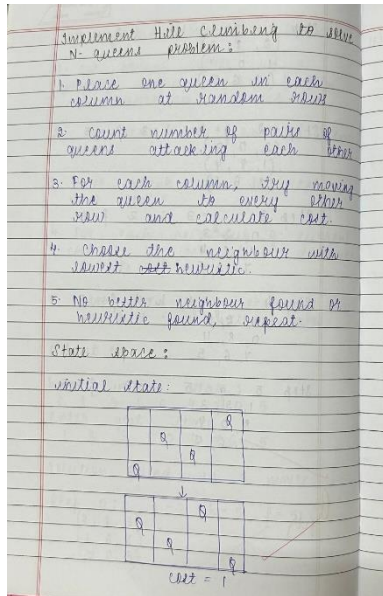 Implement Hill Climbing to solve
N-queens problem:
1. Place one queen in each
column at random rows
2. Count number of pairs of
queens attacking each other
3. For each column, try moving
the queen to every other
row and calculate cost.
4. Choose the neighbour with
lowest cost heuristic.
5. No better neighbour found or
heuristic found, repeat.
State space:
initial state:
Q
Q
Q
Q
↓
Q
Q
Q
Q
cost = 1